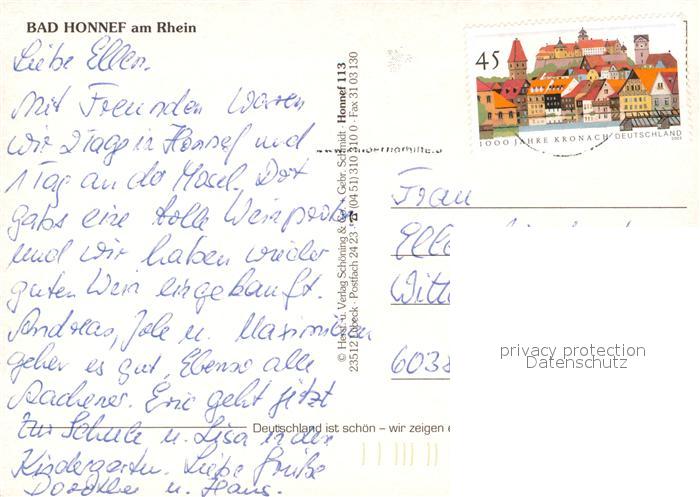 BAD HONNEF am Rhein
Liebe Ellen.
Mit Freunden waren
wir 2 Tage in Honnef und
1 Tag an der Mosel. Dort
gabs eine tolle Weinprobe
und wir haben wieder
guten Wein eingekauft.
Andreas, Jole u. Maximilian
gehen es gut, Ebenso alle
Aachener. Eric geht jetzt
zur Schule u. Lisa in den
Kindergarten. Liebe Grüße
Dorothee u. Hans.
© Herst. u. Verlag Schöning & Co + Gebr. Schmidt · Honnef 113
23512 Lübeck · Postfach 24 23 · ☎ (04 51) 310 310 0 · Fax 31 03 130
45
1000 JAHRE KRONACH DEUTSCHLAND
2003
Frau
Elle
Witt
6038
privacy protection
Datenschutz
Deutschland ist schön – wir zeigen e